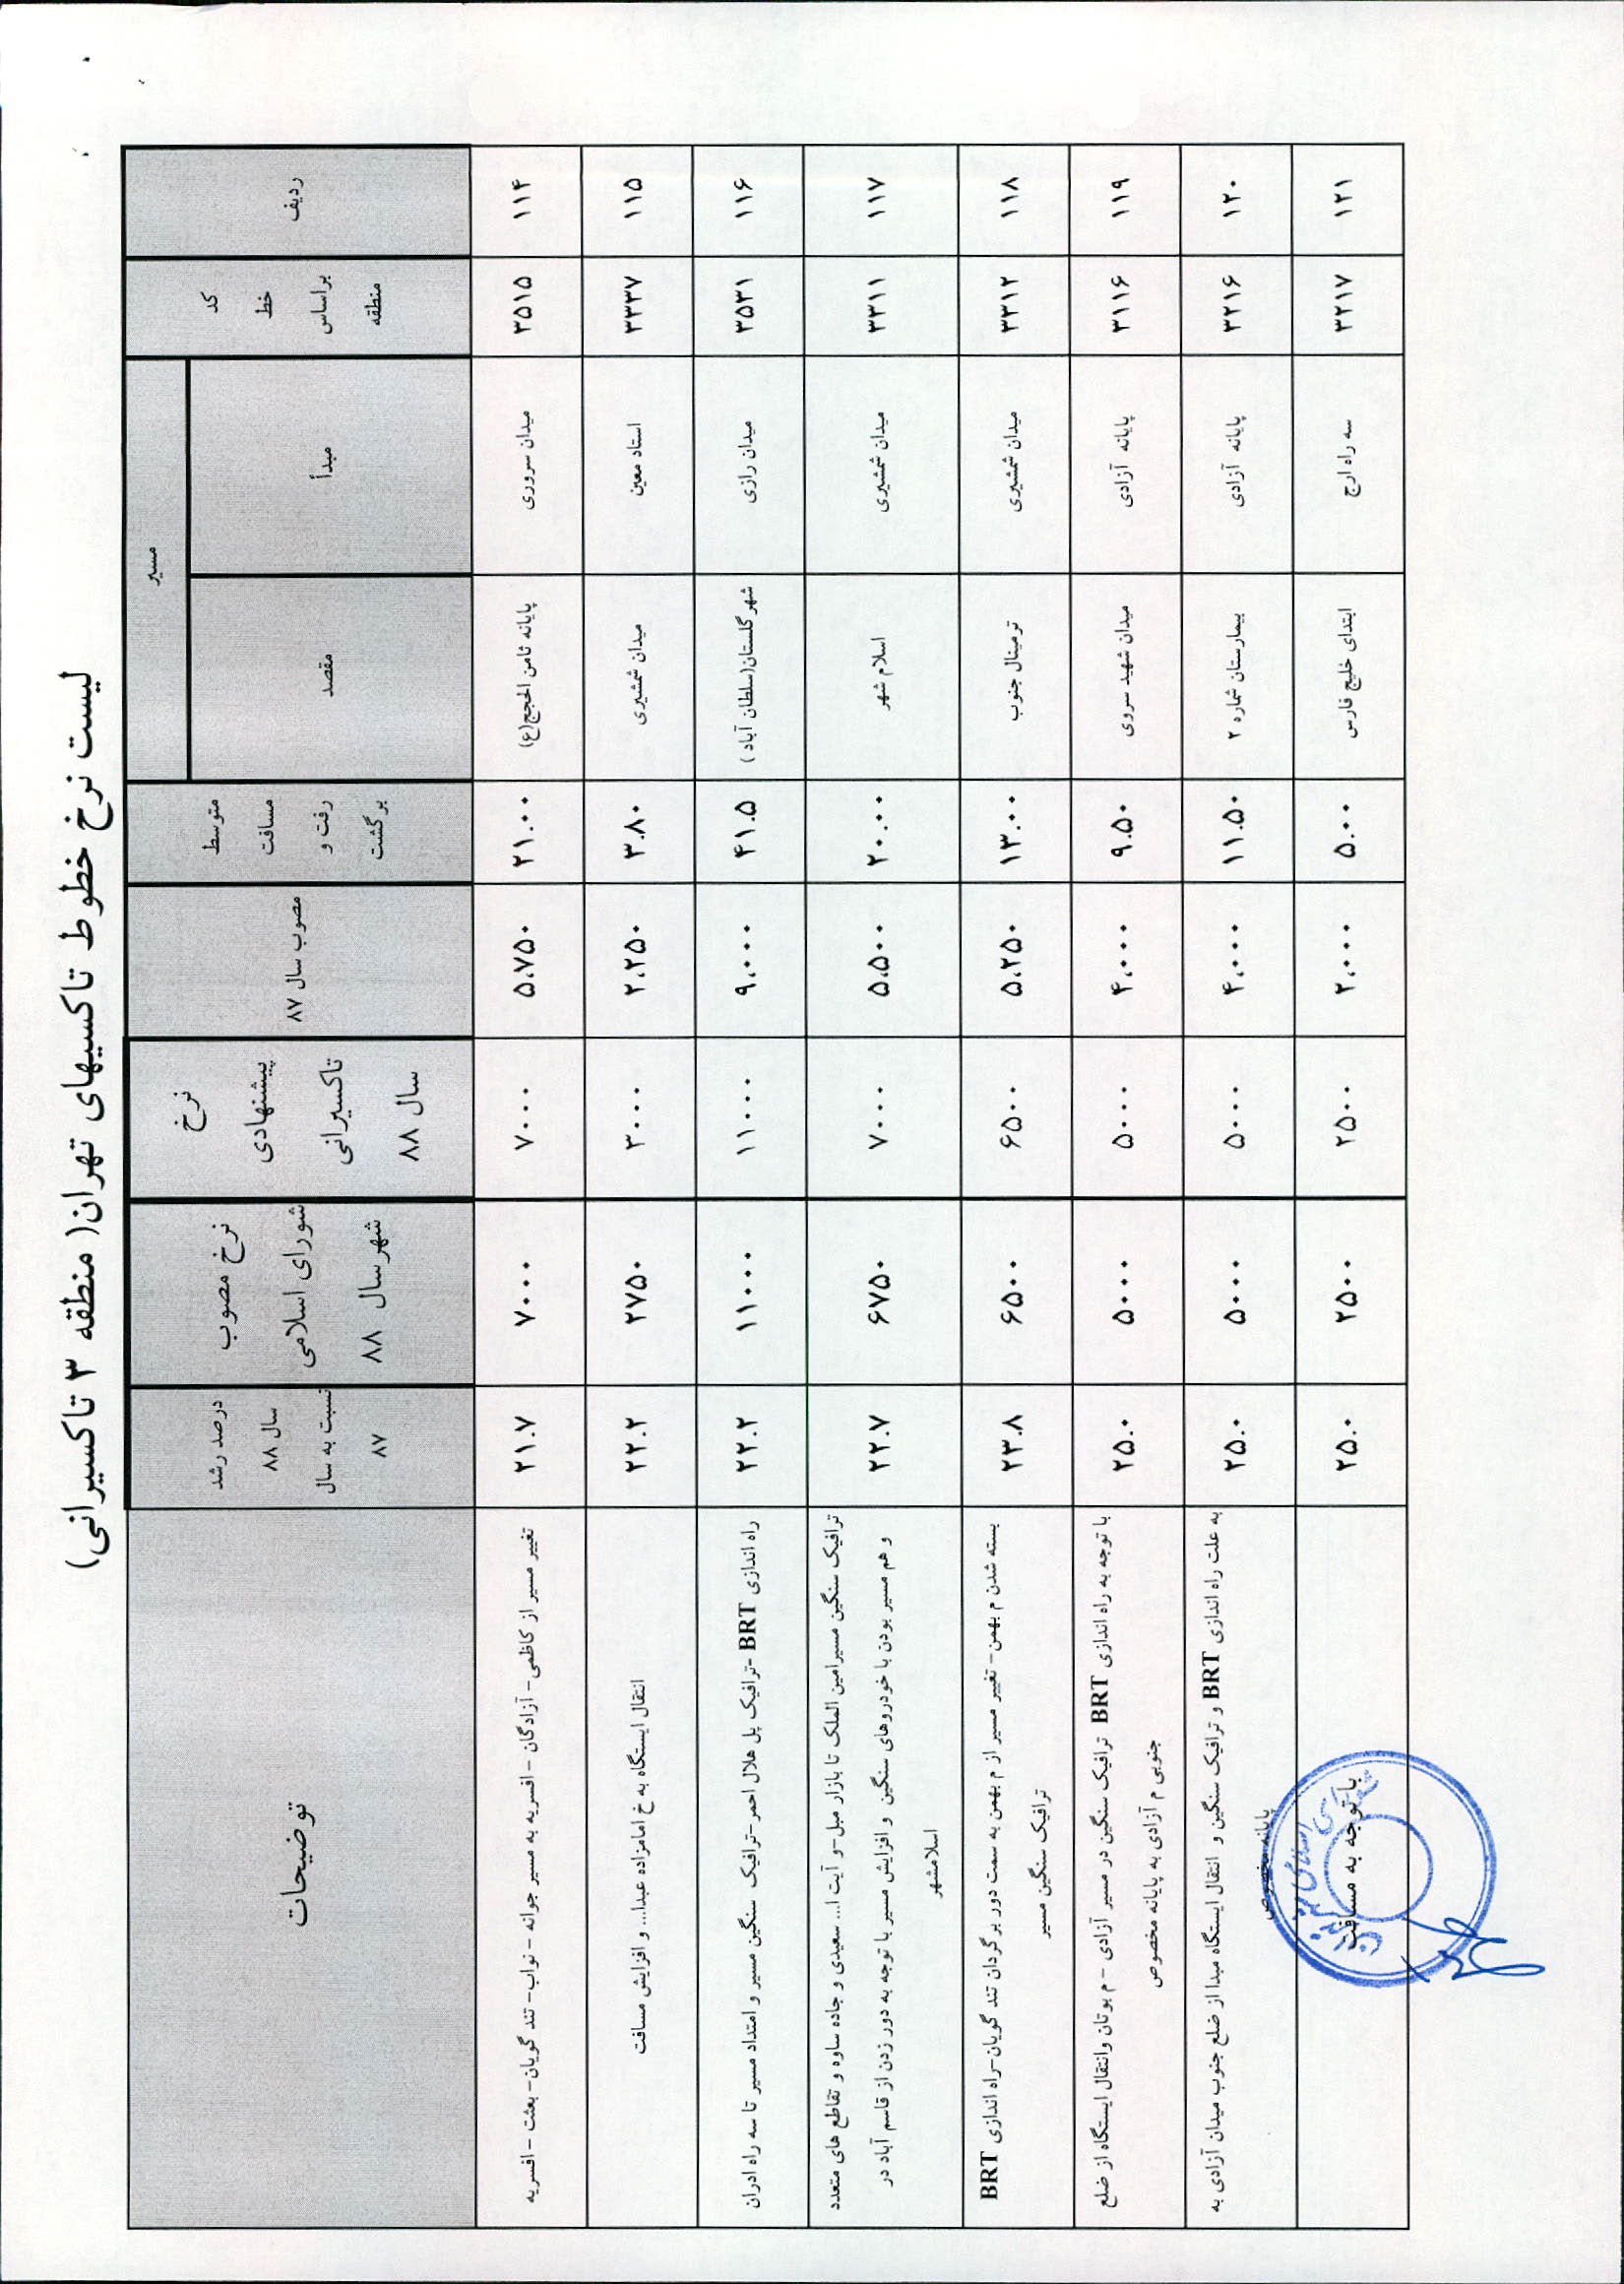 لیست نرخ خطوط تاکسیهای تهران( منطقه ۳ تاکسیرانی)
ردیف
کد
خط
براساس
منطقه
مسیر
مبدأ
مقصد
متوسط
مسافت
رفت و
برگشت
مصوب سال ۸۷
نرخ
پیشنهادی
تاکسیرانی
سال ۸۸
نرخ مصوب
شورای اسلامی
شهر سال ۸۸
درصد رشد
سال ۸۸
نسبت به سال
۸۷
توضیحات
۱۱۴ ۳۵۱۵ میدان سروری پایانه ثامن الحجج(ع) ۲۱.۰۰ ۵،۷۵۰ ۷۰۰۰ ۷۰۰۰ ۲۱.۷ تغییر مسیر از کاظمی- آزادگان - افسریه به مسیر جوانه - نواب- تند گویان- بعثت -افسریه
۱۱۵ ۳۳۳۷ استاد معین میدان شمشیری ۳.۸۰ ۲،۲۵۰ ۳۰۰۰ ۲۷۵۰ ۲۲.۲ انتقال ایستگاه به خ امامزاده عبدا... و افزایش مسافت
۱۱۶ ۳۵۳۱ میدان رازی شهر گلستان(سلطان آباد ) ۴۱.۵ ۹،۰۰۰ ۱۱۰۰۰ ۱۱۰۰۰ ۲۲.۲ راه اندازی BRT -ترافیک پل هلال احمر-ترافیک سنگین مسیر و امتداد مسیر تا سه راه ادران
۱۱۷ ۳۳۱۱ میدان شمشیری اسلام شهر ۲۰.۰۰ ۵،۵۰۰ ۷۰۰۰ ۶۷۵۰ ۲۲.۷ ترافیک سنگین مسیرامین الملک تا بازار مبل-و آیت ا... سعیدی و جاده ساوه و تقاطع های متعدد
و هم مسیر بودن با خودروهای سنگین و افزایش مسیر با توجه به دور زدن از قاسم آباد در
اسلامشهر
۱۱۸ ۳۳۱۲ میدان شمشیری ترمینال جنوب ۱۳.۰۰ ۵،۲۵۰ ۶۵۰۰ ۶۵۰۰ ۲۳.۸ بسته شدن م بهمن- تغییر مسیر از م بهمن به سمت دور برگردان تند گویان-راه اندازی BRT
ترافیک سنگین مسیر
۱۱۹ ۳۱۱۶ پایانه آزادی میدان شهید سروی ۹.۵۰ ۴،۰۰۰ ۵۰۰۰ ۵۰۰۰ ۲۵.۰ با توجه به راه اندازی BRT ترافیک سنگین در مسیر آزادی - م بوتان وانتقال ایستگاه از ضلع
جنوبی م آزادی به پایانه مخصوص
۱۲۰ ۳۲۱۶ پایانه آزادی بیمارستان شماره ۲ ۱۱.۵۰ ۴،۰۰۰ ۵۰۰۰ ۵۰۰۰ ۲۵.۰ به علت راه اندازی BRT و ترافیک سنگین و انتقال ایستگاه مبدا از ضلع جنوب میدان آزادی به
پایانه مخصوص
۱۲۱ ۳۲۱۷ سه راه ارج ابتدای خلیج فارس ۵.۰۰ ۲،۰۰۰ ۲۵۰۰ ۲۵۰۰ ۲۵.۰ با توجه به مسافت